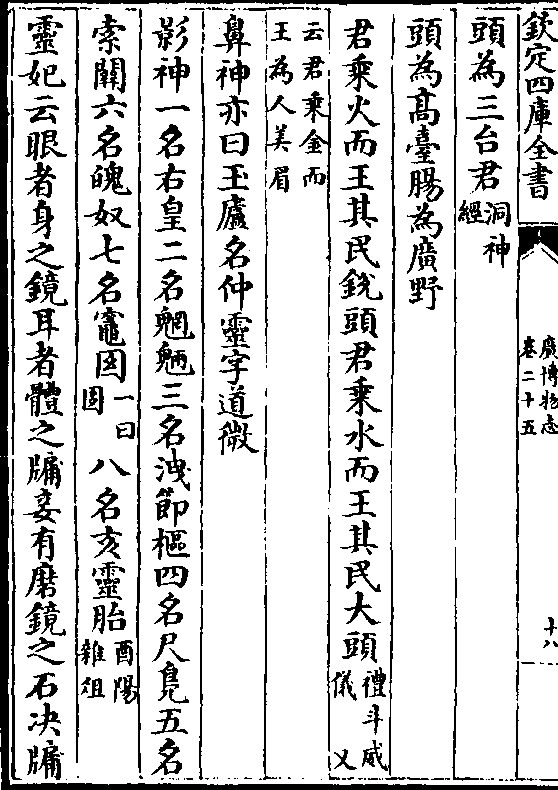 欽定四庫全書
廣博物志
卷二十五
十八
頭為三台君洞神經
頭為髙臺腸為廣野
君乘火而王其民銳頭君乘水而王其民大頭禮斗威儀又
云君乘金而王為人美眉
鼻神亦曰玉廬名仲靈字道微
影神一名右皇二名魍魎三名洩節樞四名尺鳧五名
索關六名魄奴七名竈囦一曰囼八名亥靈胎酉陽雜俎
靈妃云眼者身之鏡耳者體之牖妾有磨鏡之石决牖